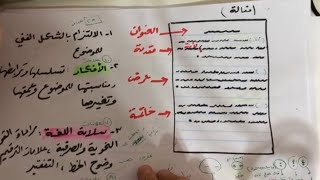 (مقالة)
العنوان
مقدمة
عرض
خاتمة
١- الالتزام بالشكل الفني
للموضوع
٢- الأفكار: تسلسلها وترابطها
ومناسبتها للموضوع وعمقها
٣- سلامة اللغة: مراعاة
النحوية والصرفية، علامات الترقيم
وضوح الخط، التفقير